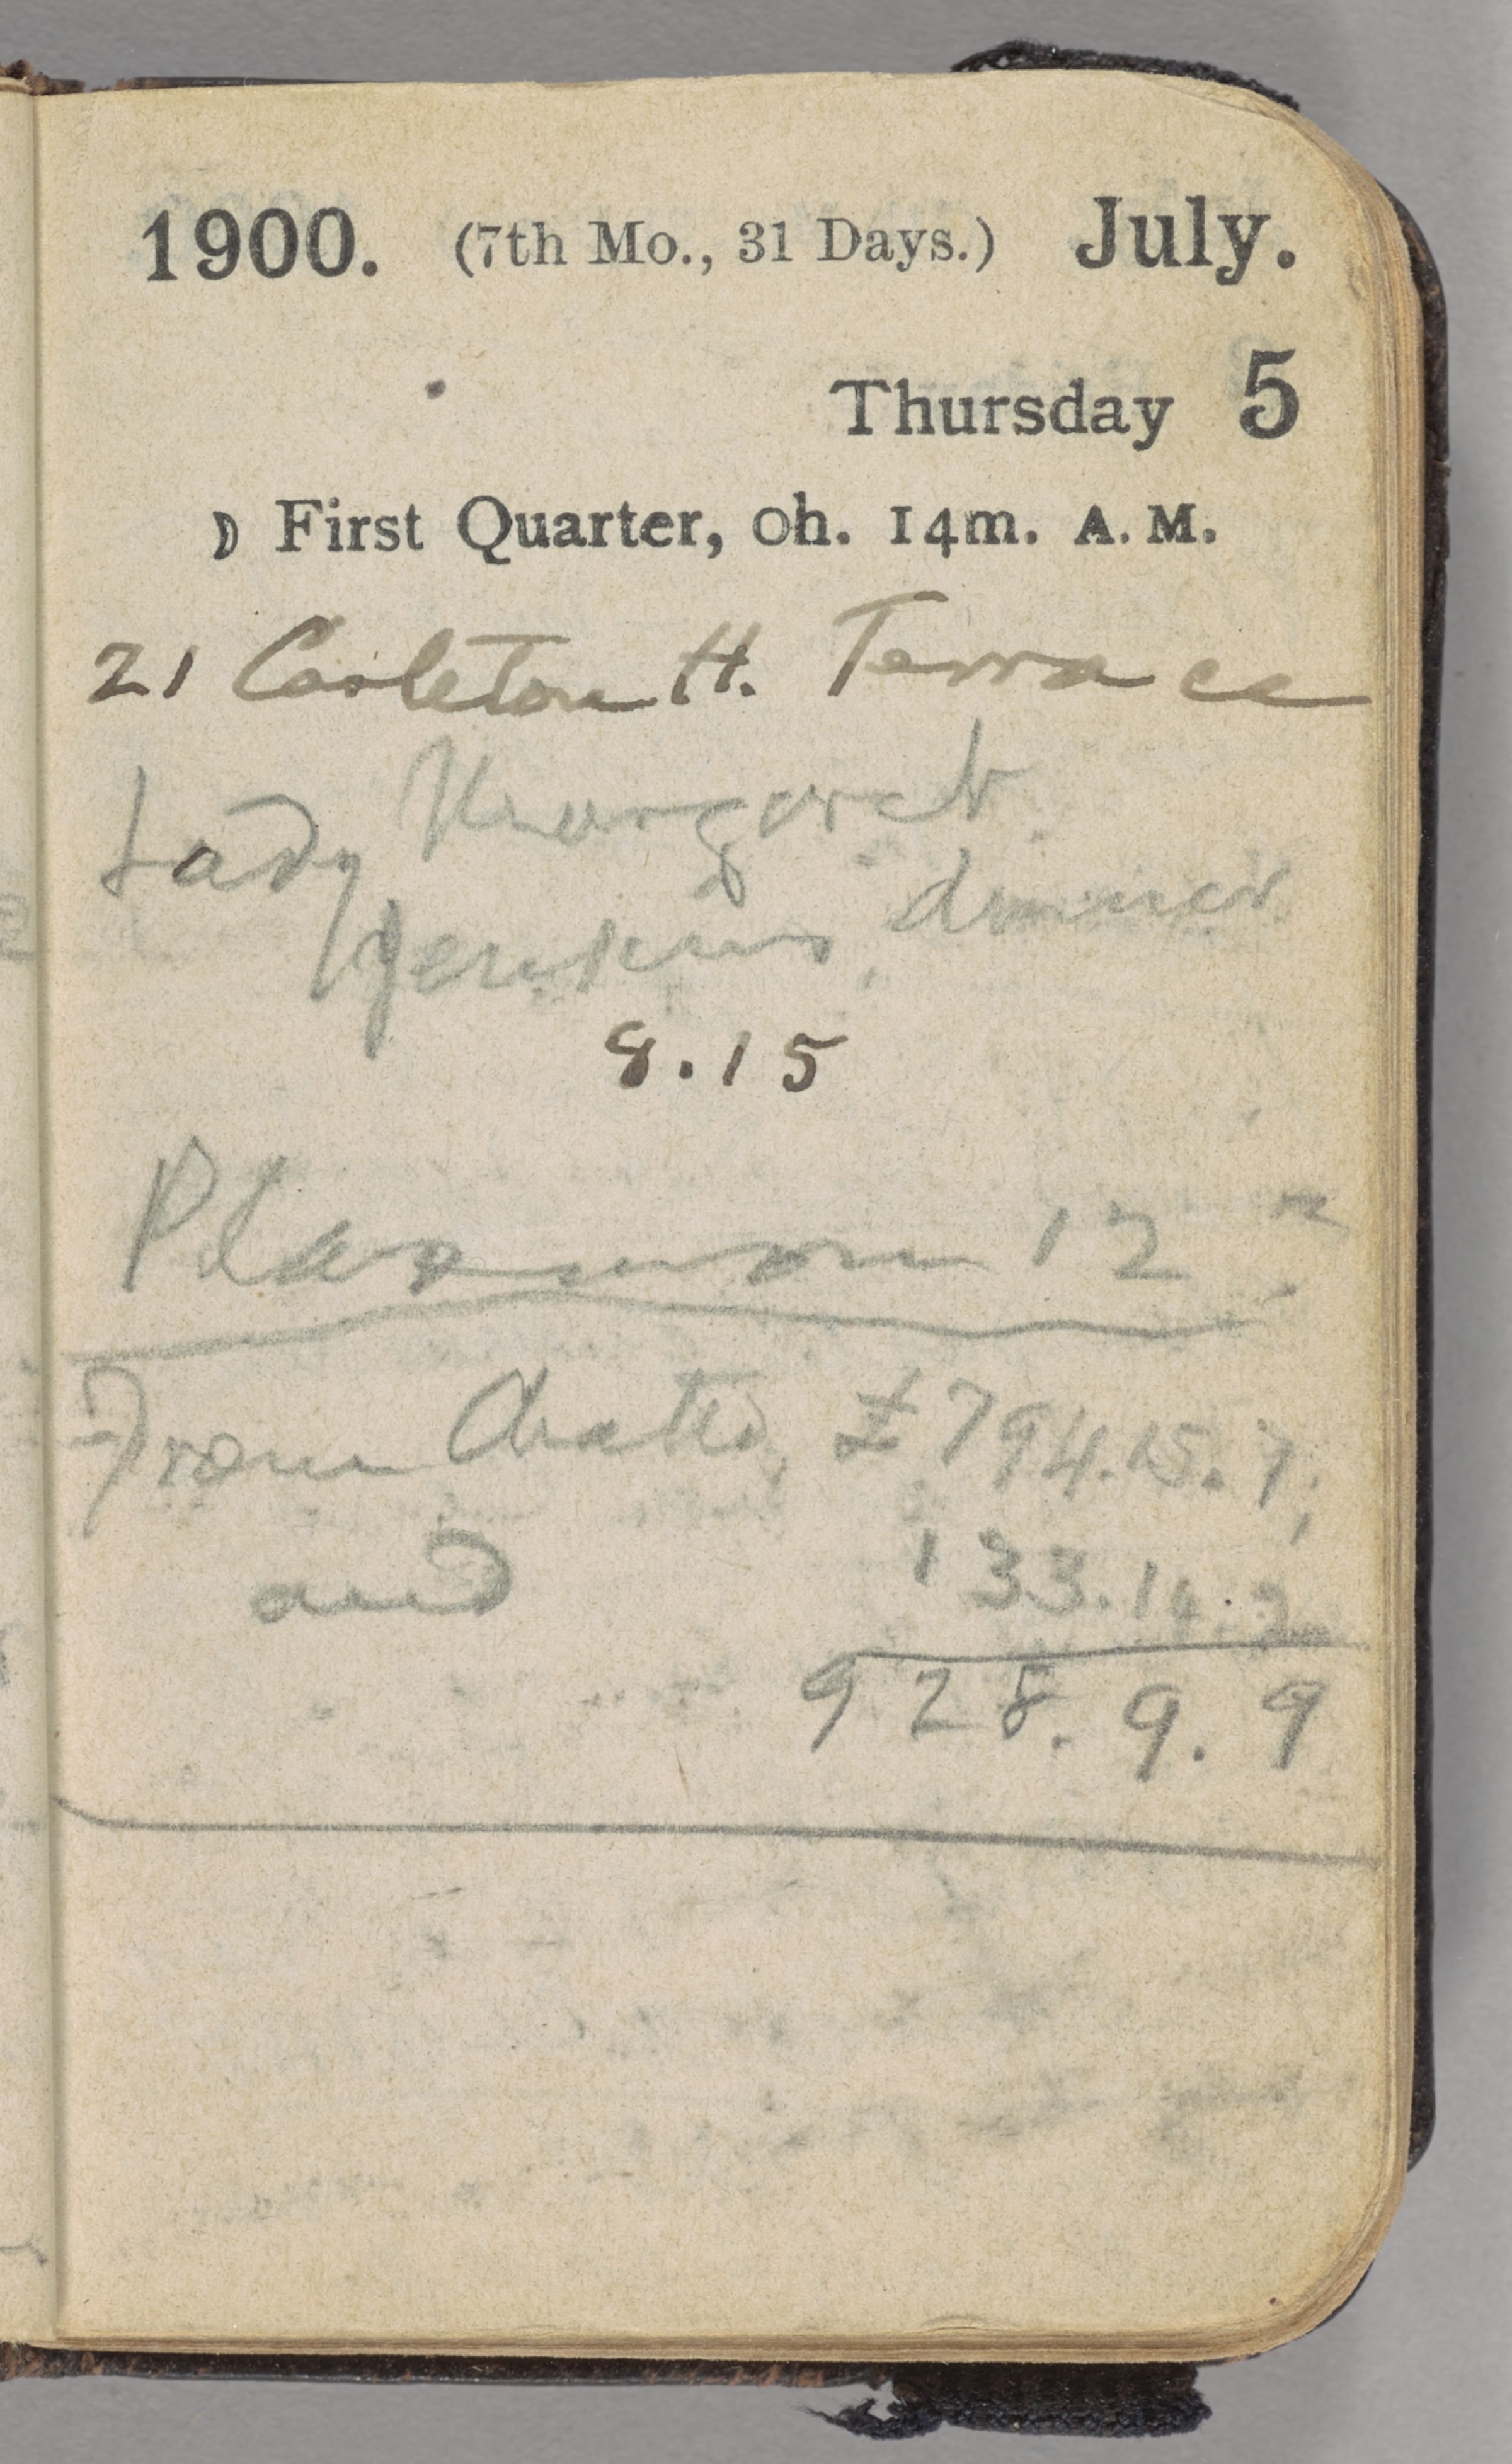 1900. (7th Mo., 31 Days.) July.
Thursday 5
☽ First Quarter, 0h. 14m. A.M.
21 Carleton H. Terrace
Lady Margaret
Jenkins, dinner
8.15
Plasmon 12
From Chatto, £794.15.7,
and 133.14.2
928.9.9